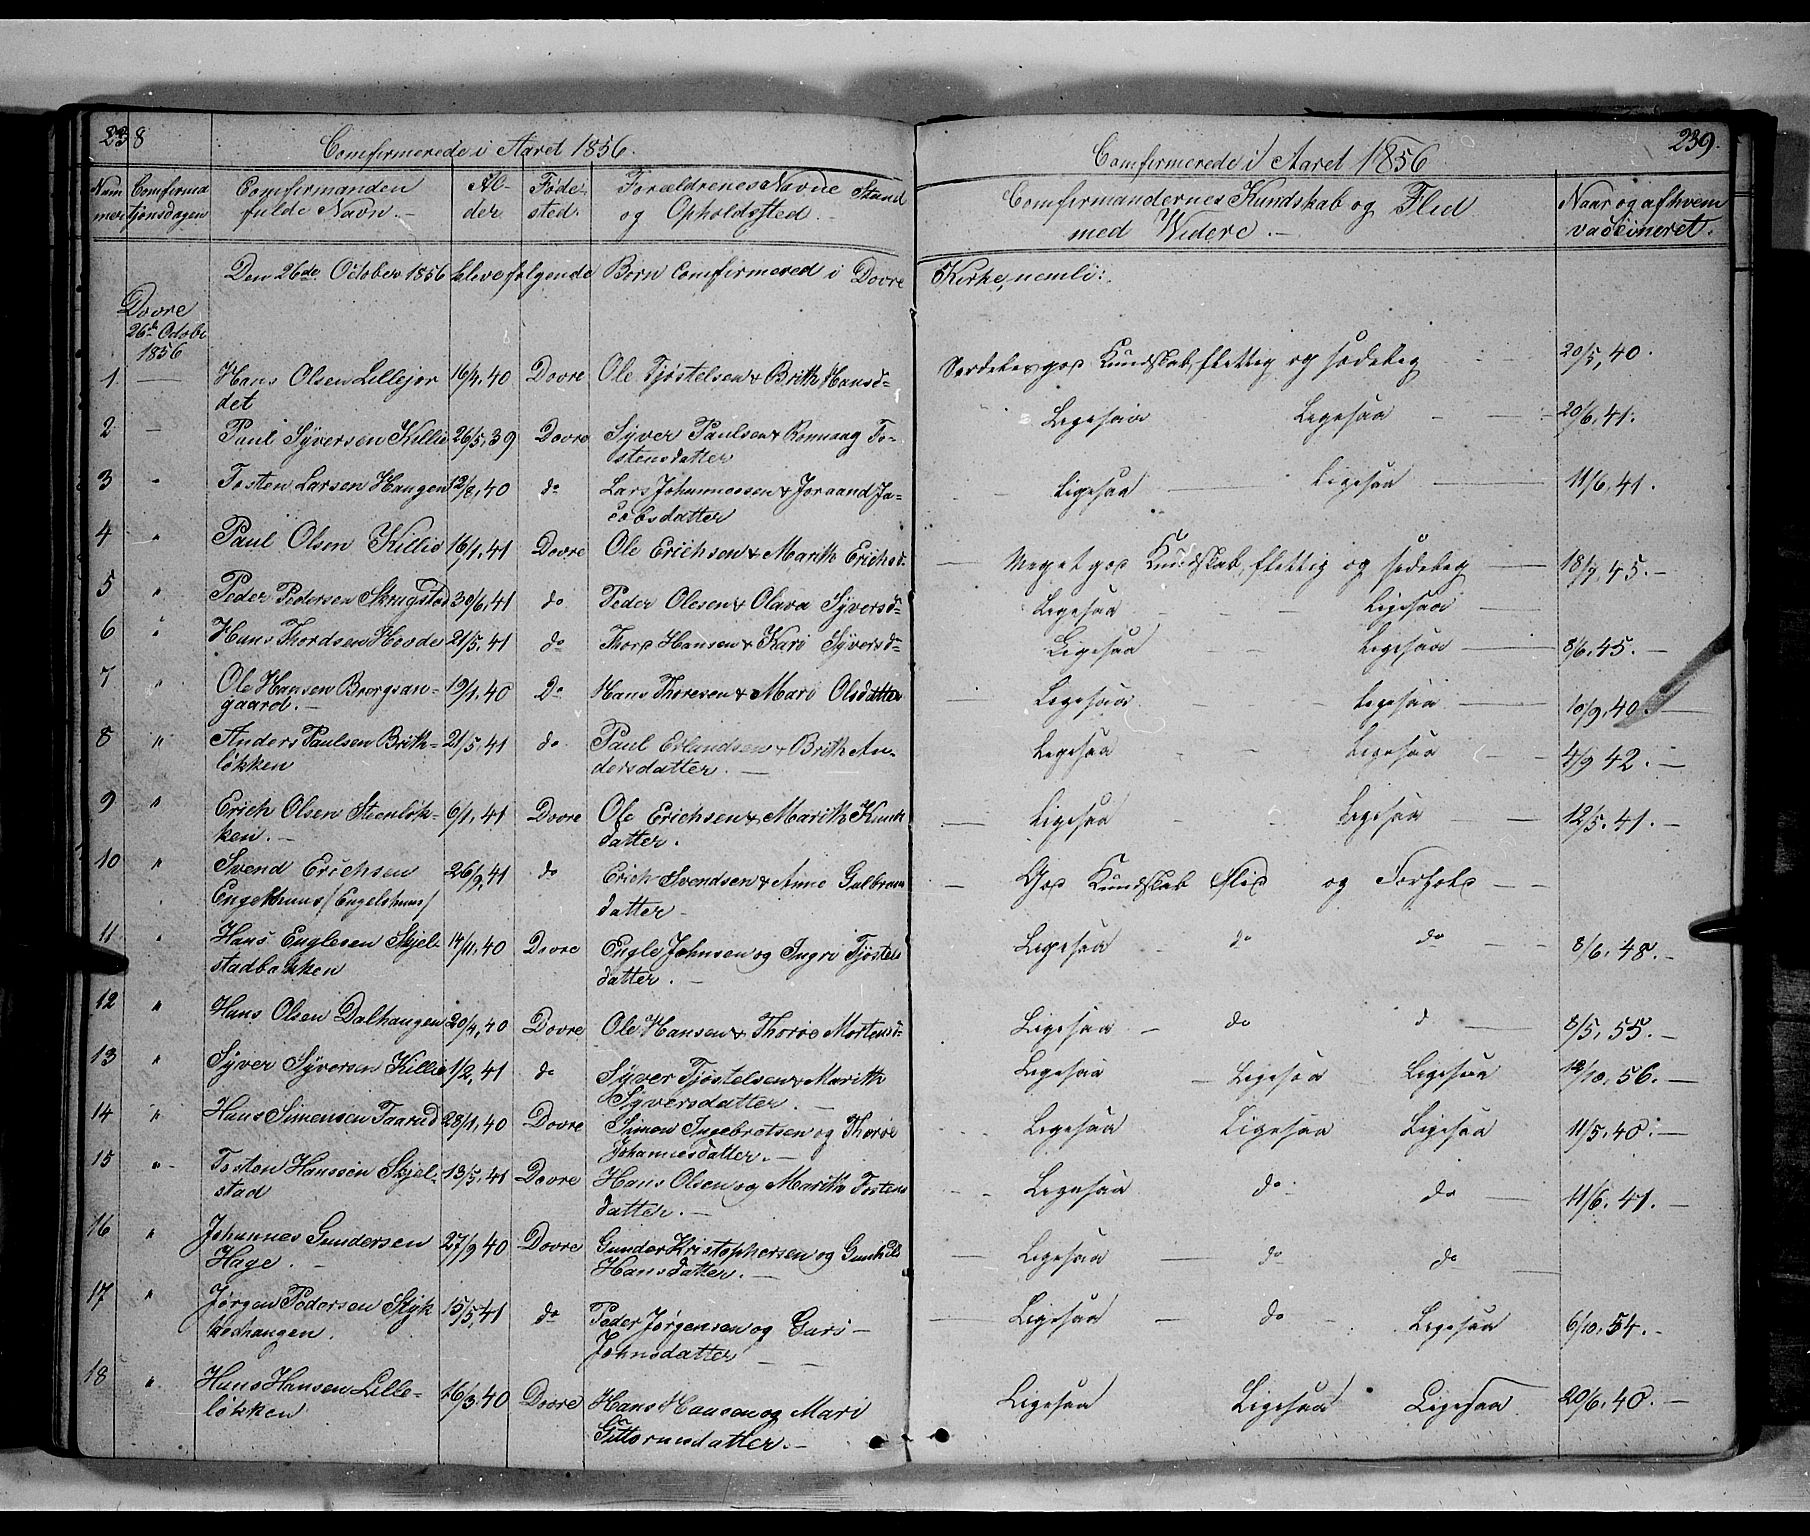 238
Comfirmerede i Aaret 1856.
Num mer
Comfirma tjonsdagen
Comfirmanden fulde Navn.
Al- der
Føde- sted.
Forældrenes Navne Stand og Opholdssted.
Den 26de October 1856 bleve følgende Børn Comfirmered i Dovre
Dovre
26de Octobr
1856
1 — Hans Olsen Lillejor 16/4, 40 Dovre Ole Tjøstelsen & Brith Hansd-
det
2 — Paul Syversen Killie 26/5, 39 Dovre Syver Paulsen & Ronnaug To-
stensdatter
3 " Tosten Larsen Haugen 12/8, 40 do Lars Johannessen & Joraand Ja-
cobsdatter
4 " Paul Olsen Killie 16/1, 41 Dovre Ole Erichsen & Marith Erichsd.
5 " Peder Pedersen Skrugstad 30/6, 41 do Peder Olesen & Olava Syversd-
6 " Hans Thordsen Hoode 21/5, 41 do Thord Hansen & Kari Syversd-
7 " Ole Hansen Borgsan- 19/1, 40 Do Hans Thoresen & Mari Olsdatter
gaard. —
8 " Anders Paulsen Brith- 21/5, 41 do Paul Erlandsen & Brith An-
løkken dersdatter. —
9 " Erich Olsen Steenløk- 6/1, 41 Dovre Ole Erichsen & Marith Knuds
ken. — datter.
10 " Svend Erichsen 26/9, 41 do Erich Svendsen & Anne Gulbrands
Engelshuus /Engelshuus/ datter —
11 " Hans Englesen Skjel- 14/11, 40 Dovre Engle Johnsen og Ingri Tjøstels
stadbakken datter. —
12 " Hans Olsen Dalhaugen 20/4, 40 Dovre Ole Hansen & Thorøe Mortensd-
13 " Syver Syversen Killie 1/2, 41 do Syver Tjøstelsen & Marith
Syversdatter. —
14 " Hans Simensen Taarud 28/1, 40 Dovre Simen Ingebretsen og Thorøe
Johannesdatter. —
15 " Tosten Hanssen Skjel- 13/5, 41 Dovre Hans Olsen og Marith Tostens
stad datter. —
16 " Johannes Gundersen 27/9, 40 Dovre Gunder Kristophersen og Gunhild
Hage. — Hansdatter. —
17 " Jørgen Pedersen Styk 15/5, 41 do Peder Jørgensen og Guri —
kedhaugen. Johnsdatter —
18 " Hans Hansen Lille- 16/3, 40 Dovre Hans Hansen og Mari
løkken Guttormsdatter. —
239.
Comfirmerede i Aaret 1856
Comfirmandernes Kundskab og Flid
med Widere. —
Naar og af hvem
vaccineret.
Kirke, nemli:
Serdeles god Kundskab, flittig og sædelig 20/5, 40.
Ligesaa — Ligesaa — 20/6, 41.
Ligesaa — Ligesaa — 11/6, 41.
— Meget god Kundskab, flittig og sædelig — 18/7, 45. —
Ligesaa Ligesaa —
Ligesaa Ligesaa — 8/6, 45. —
Ligesaa Ligesaa — 10/9, 40. —
Ligesaa Ligesaa 4/9 42. —
— Ligesaa Ligesaa — 12/5, 41. —
— God Kundskab Flid og Forhold —
Ligesaa do do — 8/6, 48. —
Ligesaa — do d — 8/5, 55. —
Ligesaa — Ligesaa Ligesaa 12/10, 56. —
Ligesaa Ligesaa Ligesaa 11/5, 40. —
Ligesaa do do — 11/6, 41. —
— Ligesaa do do
— Ligesaa — do — Ligesaa 6/10, 54. —
Ligesaa Ligesaa Ligesaa 20/6, 40. —